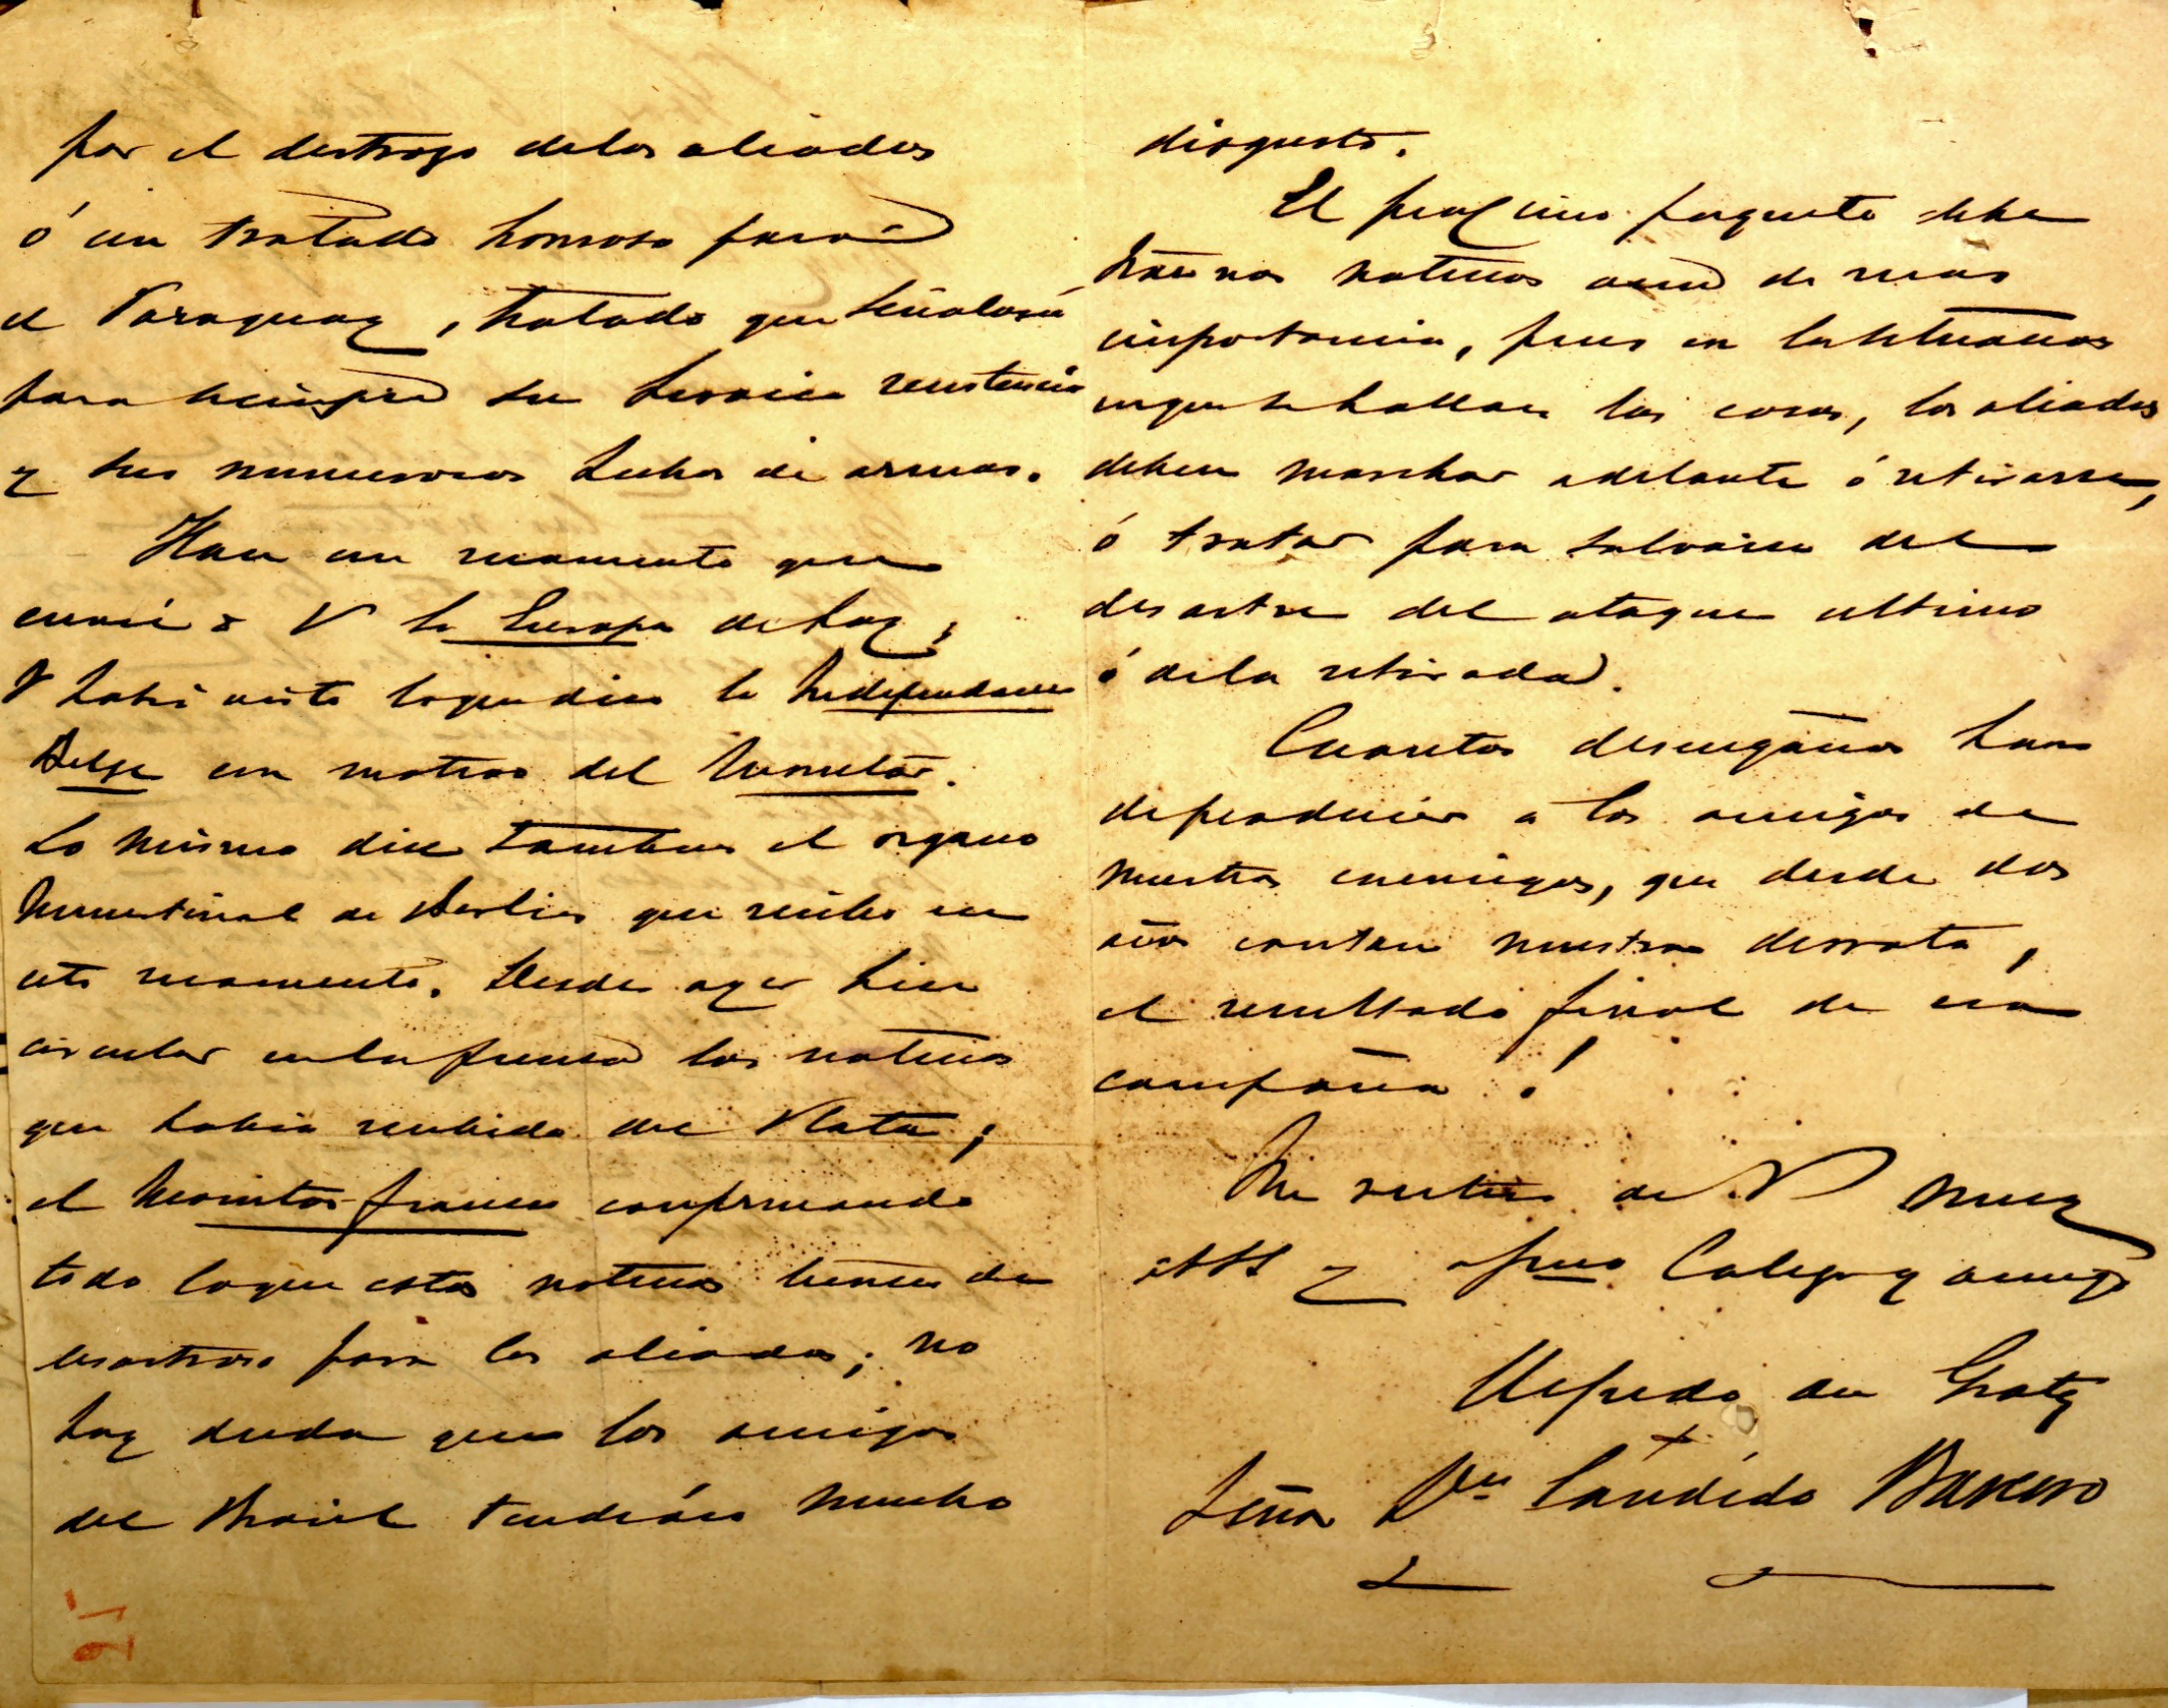 por el destrozo delos aliados
ó un tratado honroso para
el Paraguay, tratado que señalará
para siempre su heroica resistencia
y sus numerosos hechos de armas.
Hace un momento que
envié a V la Europa de hoy;
V habrá visto loque dice la Independance
Belge con motivo del Monitor.
Lo mismo dice tambien el organo
ministerial de Berlin que recibo en
este momento. Desde ayer hice
circular enla prensa las noticias
que habia recibido del Plata;
el Monitor frances confirmando
todo loque estas noticias tienen de
desastroso para los aliados; no
hay duda que los amigos
del Brasil tendrán mucho
disgusto.
El procsimo paquete debe
traernos noticias aun de mas
importancia, pues en la situacion
enque se hallan las cosas, los aliados
deben marchar adelante ó retirarse,
ó tratar para salvarse del
desastre del ataque ultimo
ó dela retirada.
Cuantos desengaños han
deproducir a los amigos de
nuestros enemigos, que desde dos
años cantan nuestra derrota,
el resultado final de esa
campaña!
Me reitero de V muy
attS y afmo Colega y amigo
Alfredo du Graty
Señor Dn Candido Bareiro